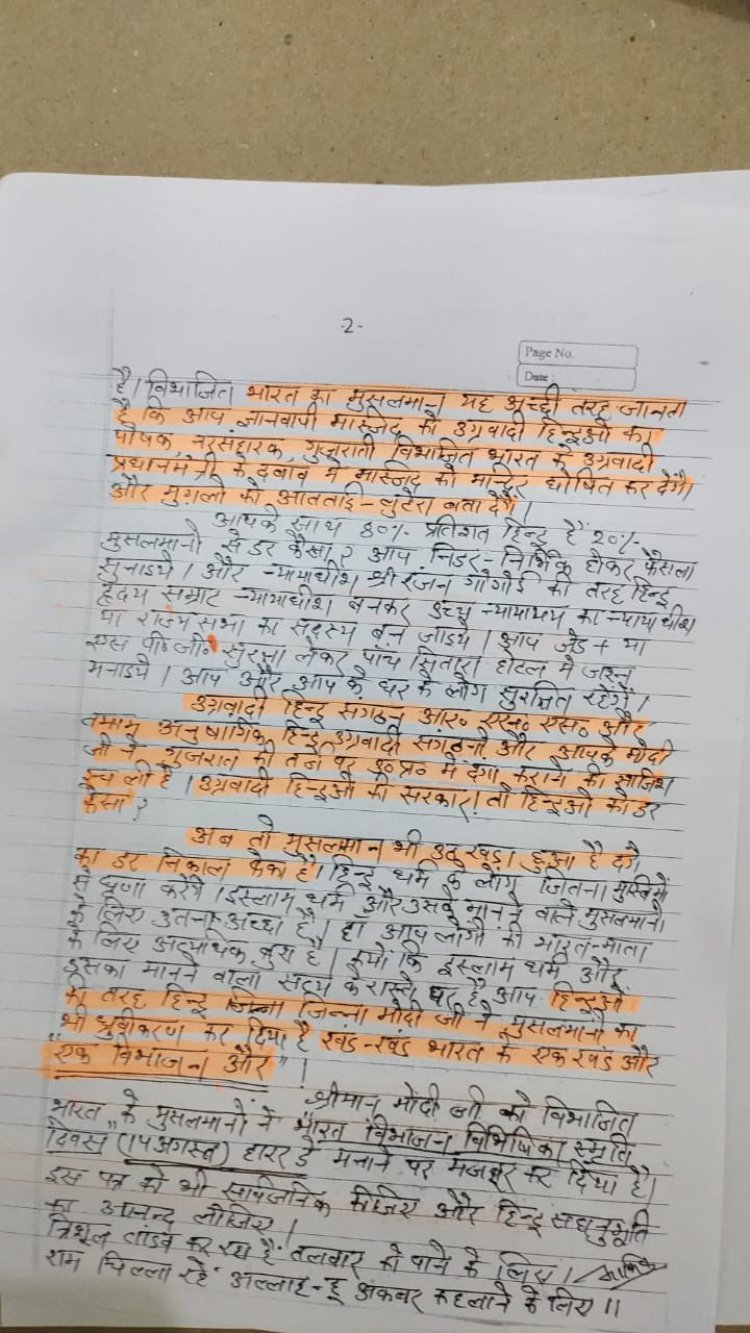 -2-
Page No.
Date
है। विभाजित भारत का मुसलमान यह अच्छी तरह जानता
है कि आप ज्ञानवापी मास्जिद को उग्रवादी हिन्दुओं का
पोषक, नरसंहारक, गुजराती विभाजित भारत के उग्रवादी
प्रधानमंत्री के दबाव में मास्जिद को मान्दिर घोषित कर देगें।
और मुगलों को आतताई-लुटेरा बता देगें।
आपके साथ 80%. प्रतिशत हिन्दू हैं 20%.
मुसलमानो से डर कैसा? आप निडर-निर्भिक होकर फैसला
सुनाइये। और न्यायाधीश श्री रंजन गोगोई की तरह हिन्दू
हृदय सम्राट न्यायाधीश बनकर उच्च न्यायालय का न्यायाधीश
या राज्य सभा का सदस्य बन जाइये। आप जेड + या
एस पी० जी० सुरक्षा लेकर पाँच सितारा होटल में जश्न
मनाइये। आप और आप के घर के लोग सुरक्षित रहेगें।
उग्रवादी हिन्दू संगठन आर० एस० एस० और
तमाम अनुषांगिक हिन्दू उग्रवादी संगठनो और आपके मोदी
जी ने गुजरात की तर्ज पर उ०प्र० में दंगा कराने की साजिश
रच ली है। उग्रवादी हिन्दुओं की सरकार! तो हिन्दुओं को डर
कैसा?
अब तो मुसलमान भी उठ खड़ा हुआ है दंगे
का डर निकाल फेंका है। हिन्दू धर्म के लोग जितना मुस्लिमों
से घृणा करेगें। इस्लाम धर्म और उसके मानने वाले मुसलमानो
के लिए उतना अच्छा है। हाँ आप लोगों की भारत-माता
के लिए अत्याधिक बुरा है। क्यों कि इस्लाम धर्म और
इसका मानने वाला सत्य के रास्ते पर है आप हिन्दुओं
की तरह हिन्दू जिन्ना मोदी जी ने मुसलमानों का
भी ध्रुवीकरण कर दिया है खंड-खंड भारत के एक खंड और
"एक विभाजन और"।
श्रीमान मोदी जी को विभाजित
भारत के मुसलमानों ने "भारत विभाजन विभिषिका स्मृति
दिवस" (14 अगस्त) हारर डे मनाने पर मजबूर कर दिया है।
इस पत्र को भी सार्वजनिक कीजिए और हिन्दू सहानुभूति
का आनन्द लीजिए।
त्रिशूल तांडव कर रहा है तलवार को पाने के लिए।
राम चिल्ला रहे अल्लाह-हू अकबर कहलाने के लिए॥